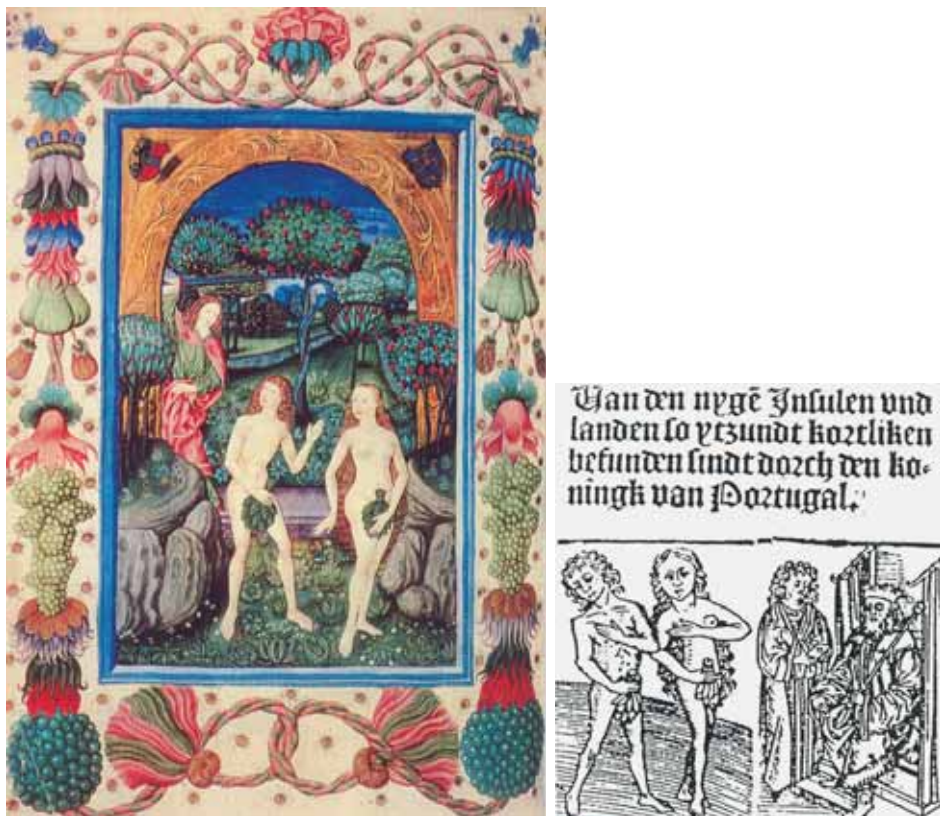 Van den nygē Insulen vnd
landen so ytzundt kortliken
befunden sindt dorch den ko-
ningk van Portugal.